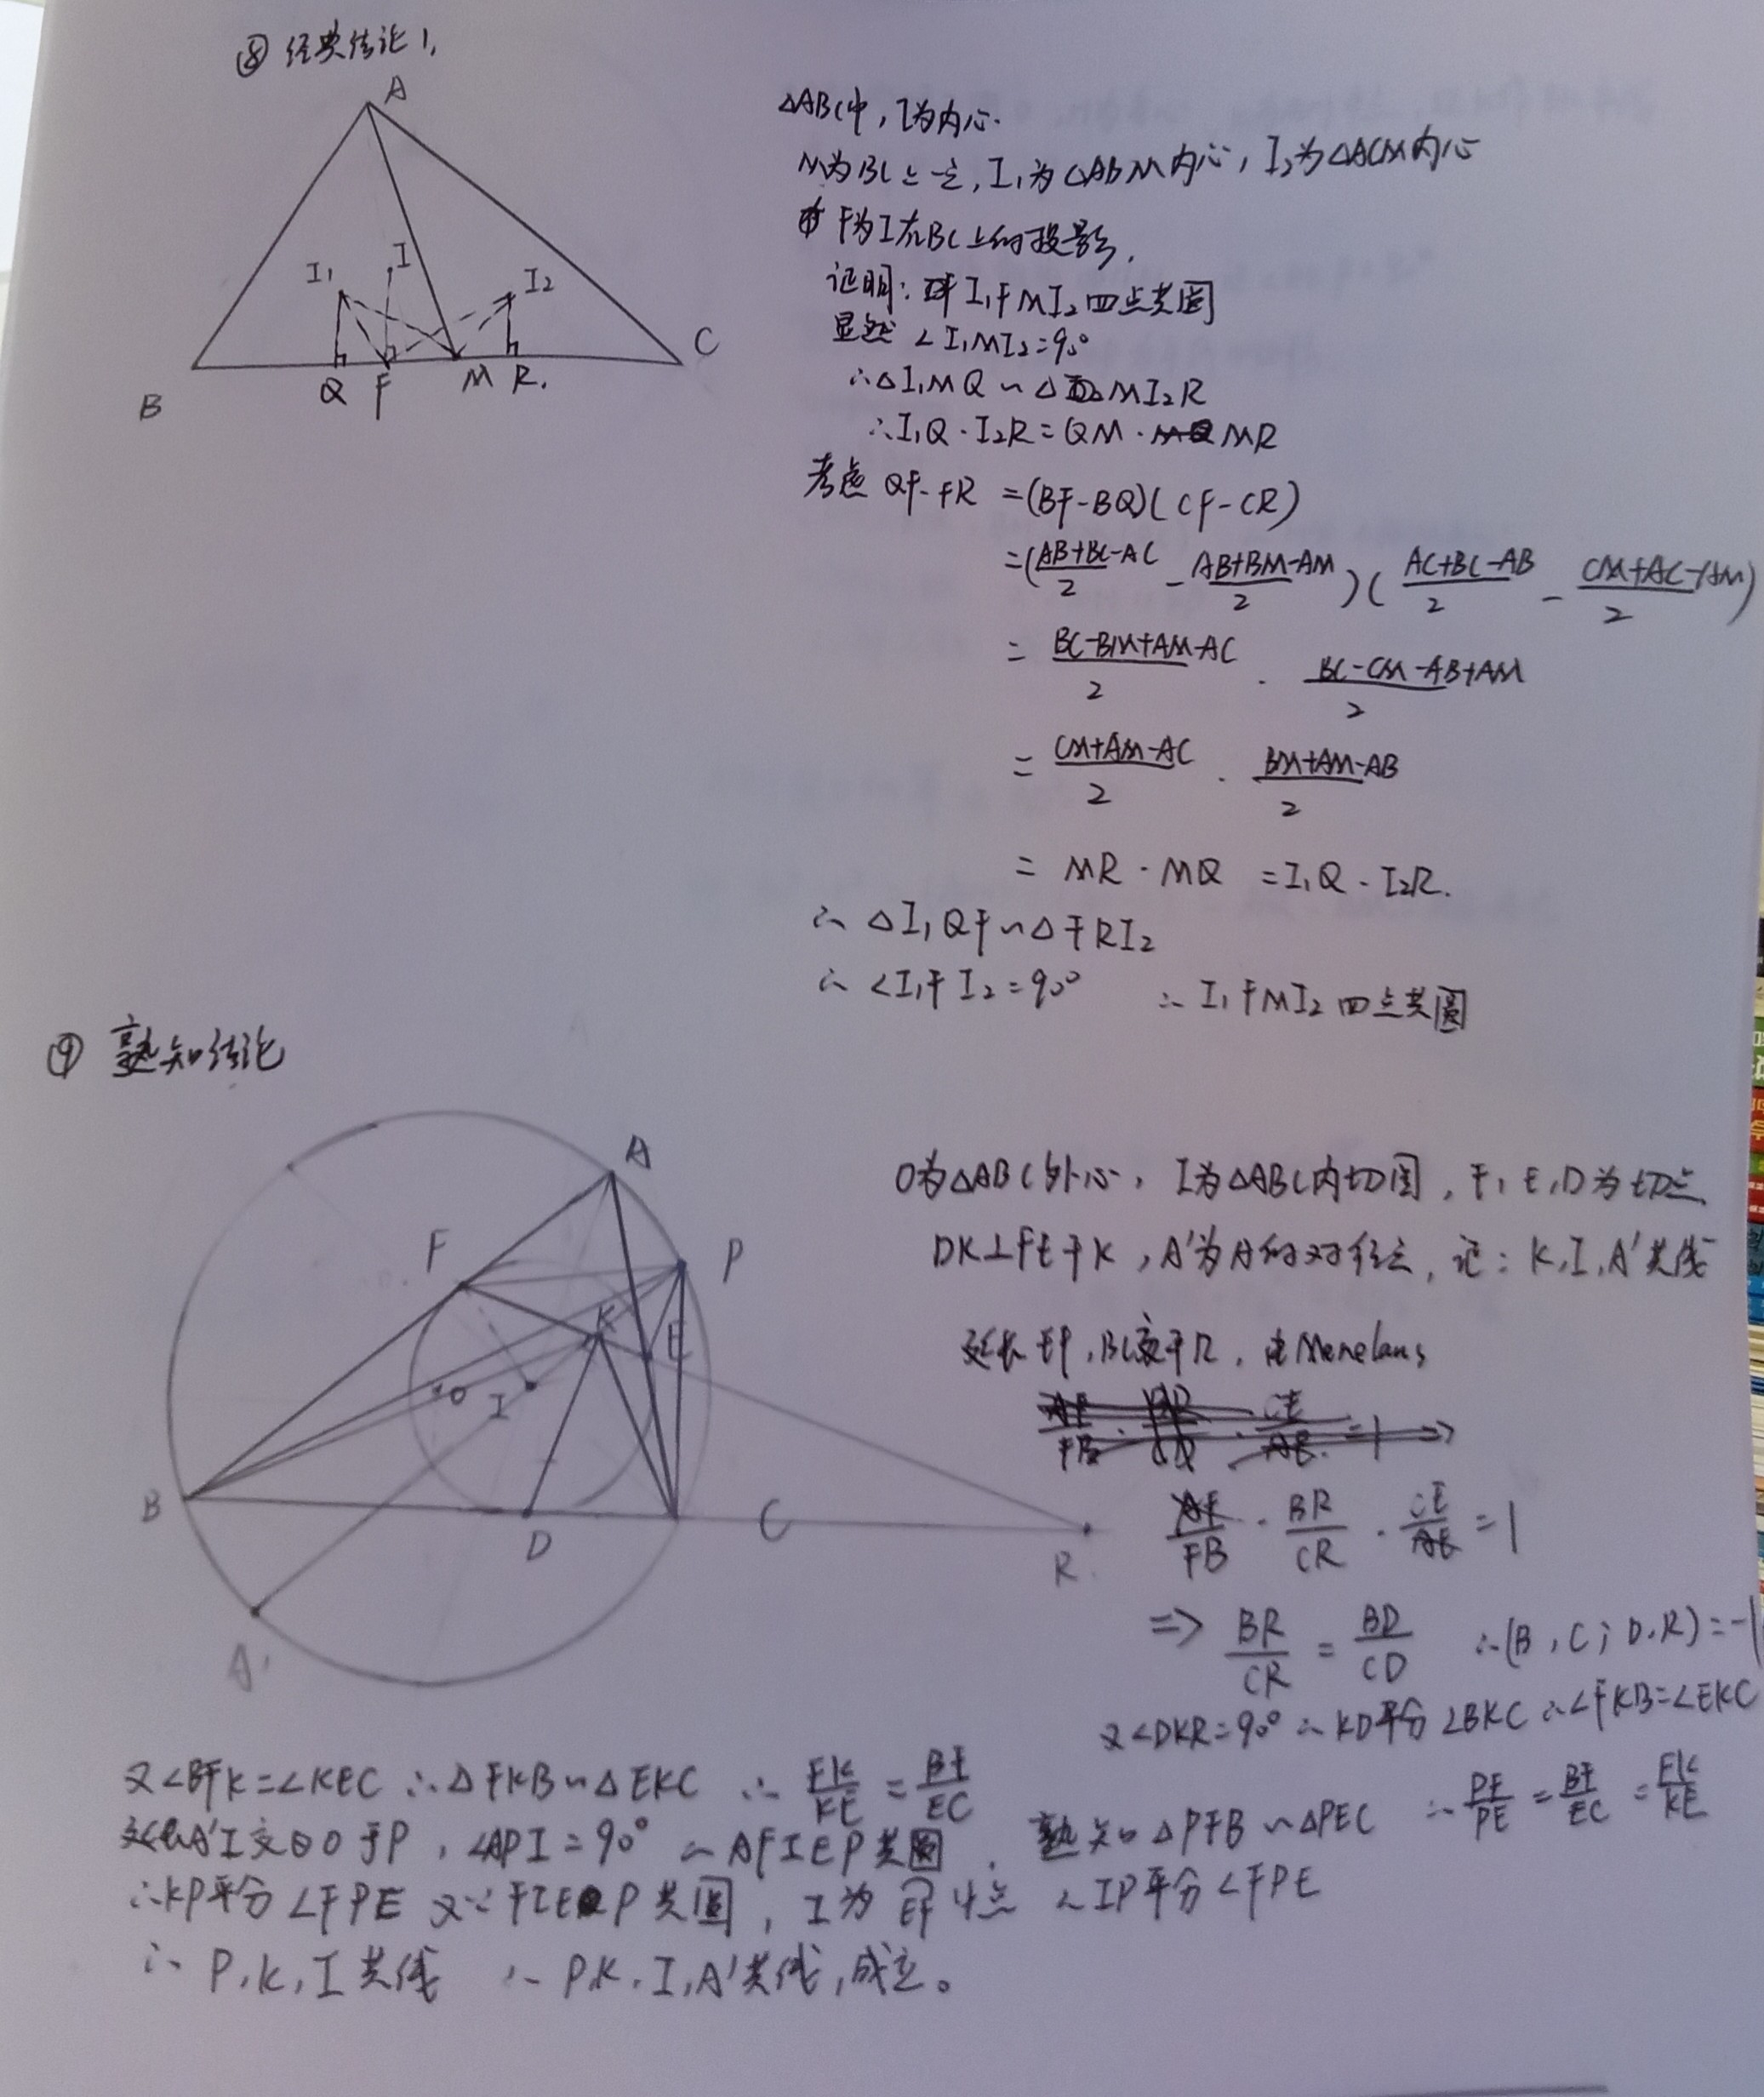 ⑧ 经典结论1.
A
I₁
I
I₂
B
Q
F
M
R.
C
△ABC中, I为内心.
M为BC上一点, I₁为△ABM内心, I₂为△ACM内心
F为I在BC上的投影.
证明: I₁FMI₂四点共圆
显然 ∠I₁MI₂=90°
∴△I₁MQ∽△MI₂R
∴I₁Q·I₂R=QM·MR
考虑 QF·FR =(BF-BQ)(CF-CR)
=(AB+BC-AC/2 - AB+BM-AM/2)(AC+BC-AB/2 - CM+AC-AM/2)
= BC-BM+AM-AC/2 · BC-CM-AB+AM/2
= CM+AM-AC/2 · BM+AM-AB/2
= MR·MQ =I₁Q·I₂R.
∴ △I₁QF∽△FRI₂
∴ ∠I₁FI₂=90° ∴ I₁FMI₂四点共圆
⑨ 熟知结论
A
F
P
K
E
O
I
B
D
C
R.
A'
O为△ABC外心, I为△ABC内切圆, F, E, D为切点.
DK⊥FE于K, A'为A的对径点, 证: K, I, A'共线
延长EF, BC交于R, 由Menelaus
AF/FB · BR/CR · CE/AE =1
=> BR/CR = BD/CD ∴(B, C; D, R)=-1
又∠DKR=90° ∴KD平分∠BKC ∴∠FKB=∠EKC
又∠BFK=∠KEC ∴△FKB∽△EKC ∴ FK/KE = BF/EC
A'I交⊙O于P, ∠API=90° ∴AFIEP共圆. 熟知△PFB∽△PEC ∴ PF/PE = BF/EC = FK/KE
∴KP平分∠FPE 又∵FIEP共圆, I为EF中点 ∴IP平分∠FPE
∴ P, K, I共线 ∴ P, K, I, A'共线, 成立。